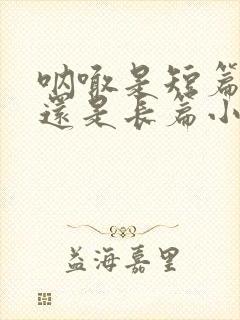 呐喊是短篇
還是長篇小
益海嘉里